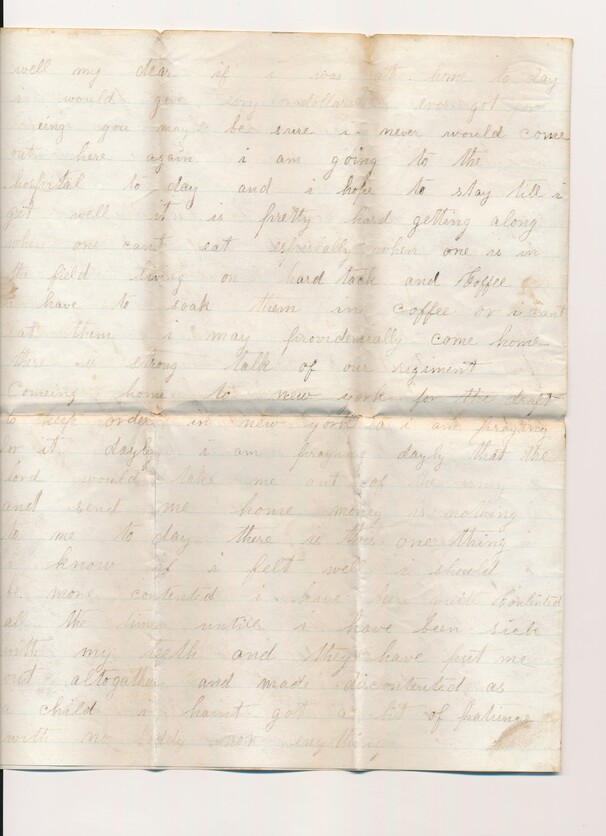 well my dear if i was at home to day
i would give any dollars ever got
seing you may be sure i never would come
out here again i am going to the
hospital to day and i hope to stay till i
get well it is pretty hard getting along
when one cant eat especially when one is in
the field living on hard tack and Coffee
have to soak them in coffee or i cant
eat them i may providencially come home
there is strong talk of our regiment
Comeing home to new york for the draft
to keep order in new york i am praying
for it dayly i am praying dayly that the
lord would take me out of the army
and send me home money is nothing
to me to day there is this one thing
i know if i felt well i should
be more contented i have been well Contented
all the time untill i have been sick
with my teeth and they have put me
out altogather and made discontented as
a child i haint got a bit of patience
with no body nor enything